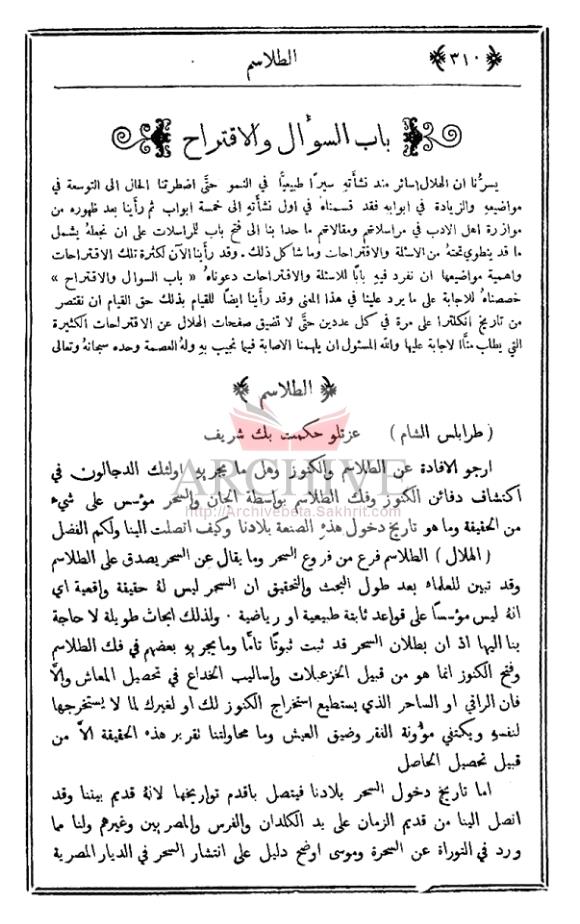 ﴿ ٣١٠ ﴾
الطلاسم
باب السؤال والاقتراح
يسرُّنا ان الهلال سائر منذ نشأتهِ سيرًا طبيعيًّا في النمو حتَّى اضطرتنا الحال الى التوسعة في
مواضيعهِ والزيادة في ابوابهِ فقد قسمناهُ في اول نشأتهِ الى خمسة ابواب ثم رأينا بعد ظهوره من
موازرة اهل الادب في مراسلاتهم ومقالاتهم ما حدا بنا الى فتح باب للمراسلات على ان نجعلهُ يشمل
ما قد ينطوي تحتهُ من الاسئلة والاقتراحات وما شاكل ذلك . وقد رأينا الآن لكثرة تلك الاقتراحات
واهمية مواضيعها ان نفرد فيهِ بابًا للاسئلة والاقتراحات دعوناهُ « باب السوال والاقتراح »
خصصناهُ للاجابة على ما يرد علينا في هذا المعنى وقد رأينا ايضًا للقيام بذلك حق القيام ان نقتصر
من تاريخ انكلترا على مرة في كل عددين حتَّى لا تضيق صفحات الهلال عن الاقتراحات الكثيرة
التي يطلب منَّا الاجابة عليها والله المسئول ان يلهمنا الاصابة فيما نجيب بهِ ولهُ العصمة وحده سبحانهُ وتعالى
﴿ الطلاسم ﴾
( طرابلس الشام ) عزتلو حكمت بك شريف
ارجو الافادة عن الطلاسم والكنوز وهل ما يجريهِ اولئك الدجالون في
اكتشاف دفائن الكنوز وفك الطلاسم بواسطة الجان والسحر مؤسس على شيء
من الحقيقة وما هو تاريخ دخول هذهِ الصنعة بلادنا وكيف اتصلت الينا ولكم الفضل
( الهلال ) الطلاسم فرع من فروع السحر وما يقال عن السحر يصدق على الطلاسم
وقد تبين للعلماء بعد طول البحث والتحقيق ان السحر ليس لهُ حقيقة واقعية اي
انهُ ليس مؤسسًا على قواعد ثابتة طبيعية او رياضية . ولذلك ابحاث طويلة لا حاجة
بنا اليها اذ ان بطلان السحر قد ثبت ثبوتًا تامًّا وما يجريهِ بعضهم في فك الطلاسم
وفتح الكنوز انما هو من قبيل الخزعبلات واساليب الخداع في تحصيل المعاش والَّا
فان الراقي او الساحر الذي يستطيع استخراج الكنوز لك او لغيرك لما لا يستخرجها
لنفسهِ ويكتفي مؤونة الفقر وضيق العيش وما محاولتنا تقرير هذه الحقيقة الَّا من
قبيل تحصيل الحاصل
اما تاريخ دخول السحر بلادنا فيتصل باقدم تواريخها لانهُ قديم بيننا وقد
اتصل الينا من قديم الزمان على يد الكلدان والفرس والمصريين وغيرهم ولنا مما
ورد في التوراة عن السحرة وموسى اوضح دليل على انتشار السحر في الديار المصرية
ARCHIVE
http://Archivebeta.Sakhrit.com